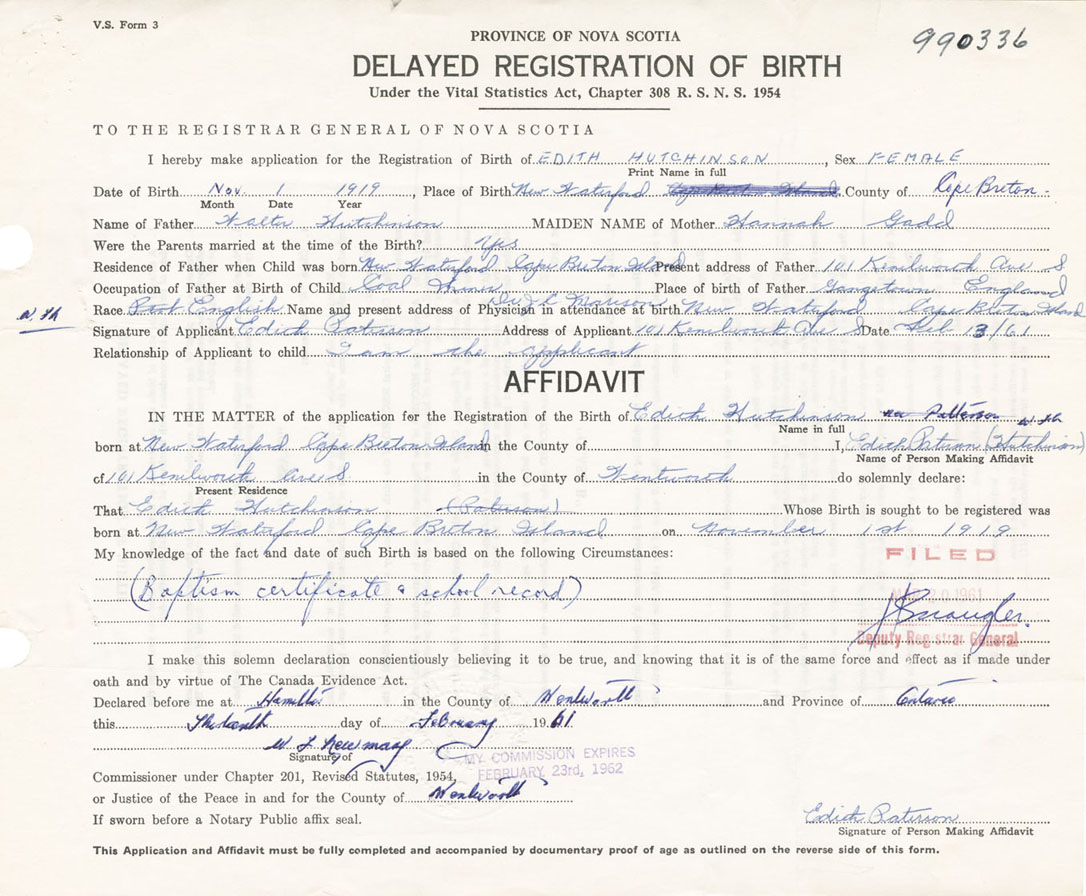 V.S. Form 3
PROVINCE OF NOVA SCOTIA
990336
DELAYED REGISTRATION OF BIRTH
Under the Vital Statistics Act, Chapter 308 R. S. N. S. 1954
TO THE REGISTRAR GENERAL OF NOVA SCOTIA
I hereby make application for the Registration of Birth of EDITH HUTCHINSON, Sex FEMALE
Print Name in full
Date of Birth Nov. 1 1919, Place of Birth New Waterford Cape Breton Island County of Cape Breton
Month Date Year
Name of Father Walter Hutchinson MAIDEN NAME of Mother Hannah Gadd
Were the Parents married at the time of the Birth? Yes
Residence of Father when Child was born New Waterford Cape Breton Island Present address of Father 101 Kenilworth Ave S
Occupation of Father at Birth of Child Coal Miner Place of birth of Father England
Race English Name and present address of Physician in attendance at birth New Waterford Cape Breton Island
Signature of Applicant Edith Paterson Address of Applicant 101 Kenilworth Ave S Date Feb 13/61
Relationship of Applicant to child I am the applicant
AFFIDAVIT
IN THE MATTER of the application for the Registration of the Birth of Edith Hutchinson
Name in full
born at New Waterford Cape Breton Island in the County of I, Edith Paterson (Hutchinson)
Name of Person Making Affidavit
of 101 Kenilworth Ave S. in the County of Wentworth do solemnly declare:
Present Residence
That Edith Hutchinson (Paterson) Whose Birth is sought to be registered was
born at New Waterford Cape Breton Island on November 1st 1919
My knowledge of the fact and date of such Birth is based on the following Circumstances:
FILED
(Baptism certificate & school record)
1961
Deputy Registrar General
I make this solemn declaration conscientiously believing it to be true, and knowing that it is of the same force and effect as if made under
oath and by virtue of The Canada Evidence Act.
Declared before me at Hamilton in the County of Wentworth and Province of Ontario
this Thirteenth day of February 1961
Signature of
MY COMMISSION EXPIRES
FEBRUARY 23rd, 1962
Commissioner under Chapter 201, Revised Statutes, 1954,
or Justice of the Peace in and for the County of Wentworth
If sworn before a Notary Public affix seal.
Edith Paterson
Signature of Person Making Affidavit
This Application and Affidavit must be fully completed and accompanied by documentary proof of age as outlined on the reverse side of this form.